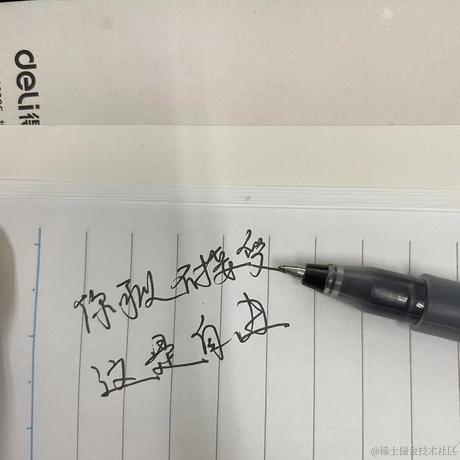 deli得
你敢不接受
这是自由
@稀土掘金技术社区